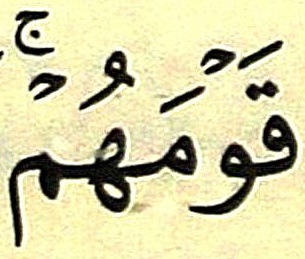 قَوْمَهُمْ ۚ